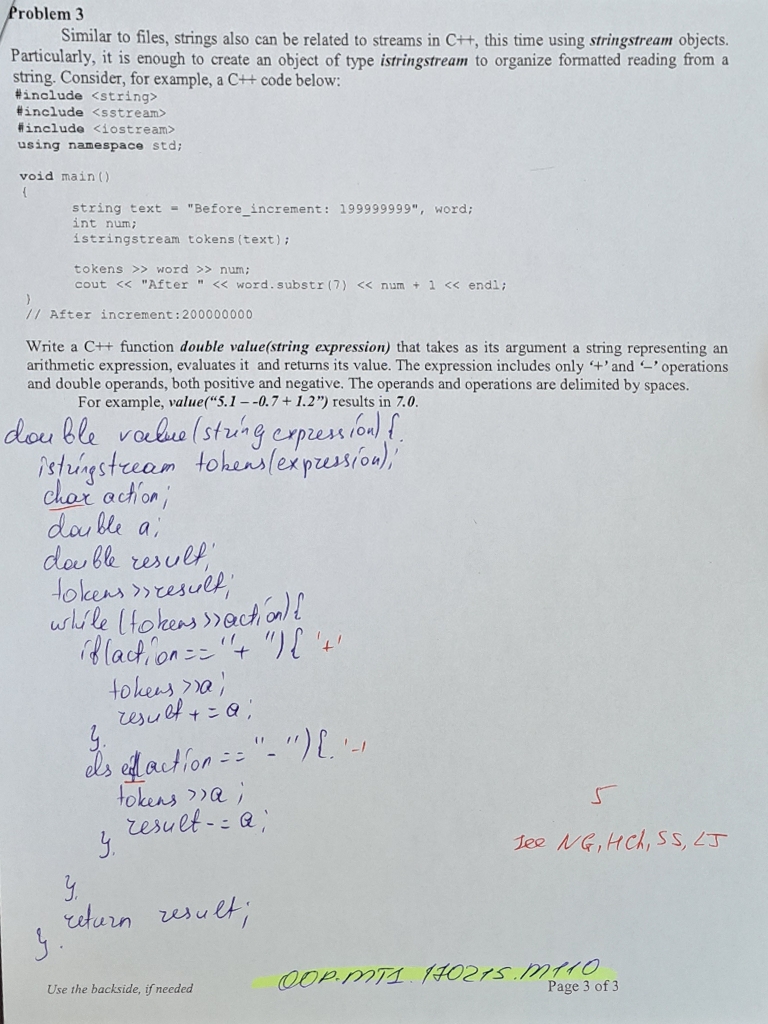 Problem 3
Similar to files, strings also can be related to streams in C++, this time using stringstream objects.
Particularly, it is enough to create an object of type istringstream to organize formatted reading from a
string. Consider, for example, a C++ code below:
#include <string>
#include <sstream>
#include <iostream>
using namespace std;
void main()
{
string text = "Before_increment: 199999999", word;
int num;
istringstream tokens(text);
tokens >> word >> num;
cout << "After " << word.substr(7) << num + 1 << endl;
}
// After increment:200000000
Write a C++ function double value(string expression) that takes as its argument a string representing an
arithmetic expression, evaluates it and returns its value. The expression includes only ‘+’ and ‘–’ operations
and double operands, both positive and negative. The operands and operations are delimited by spaces.
For example, value(“5.1 – -0.7 + 1.2”) results in 7.0.
double value(string expression) {
istringstream tokens(expression);
char action;
double a;
double result;
tokens >> result;
while (tokens >> action) {
if(action == "+ ") { '+'
tokens >> a;
result += a;
}
els if(action == "-") { '-'
tokens >> a;
result -= a;
}
}
return result;
}
5
See NG, HCh, SS, LJ
OOP.MT1.170215.M110
Use the backside, if needed
Page 3 of 3